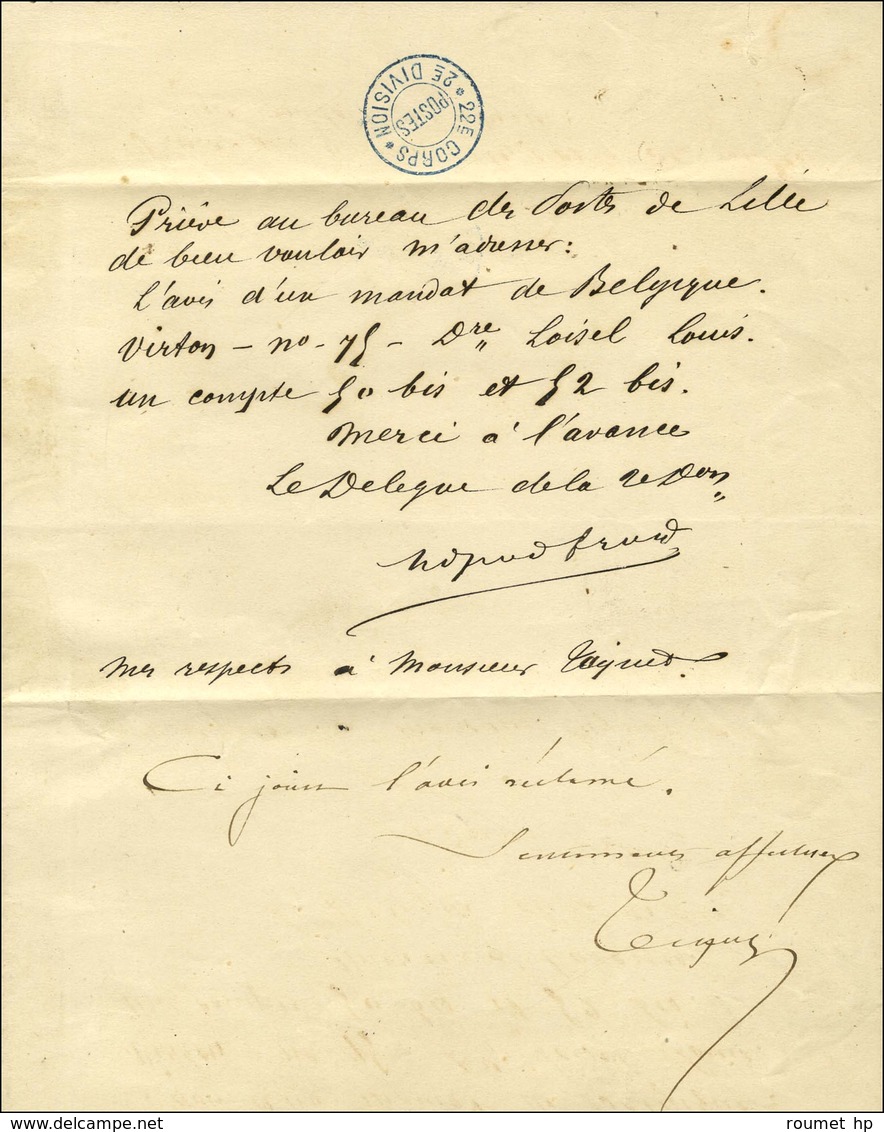 * 22E CORPS * 2E DIVISION
POSTES
Prière au bureau des Postes de Lille
de bien vouloir m'adresser:
L'avis d'un mandat de Belgique.
Virton - no - 75 - Dre Loisel Louis.
un compte 50 bis et 52 bis.
Merci à l'avance
Le Delegue de la 2e Don
Mes respects à Monsieur
Ci joint l'avis réclamé.
Sentiments affectueux
roumet hp